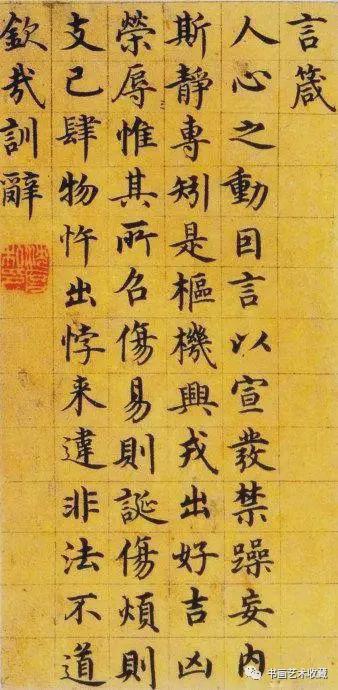 言箴
人心之動囙言以宣發禁躁妄内
斯靜專矧是樞機興戎出好吉凶
榮辱惟其所召傷易則誕傷煩則
支己肆物忤出悖来違非法不道
欽哉訓辭
书画艺术收藏